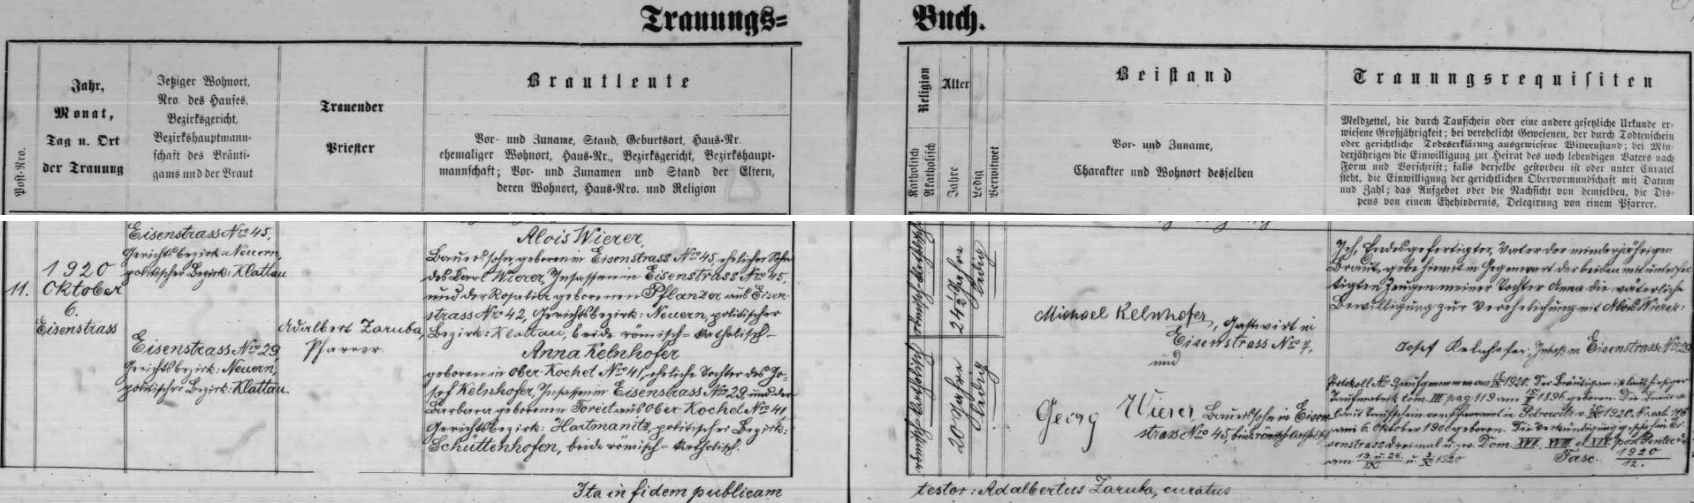 Trauungs=
Buch.
Post-Nro.
Jahr,
Monat,
Tag u. Ort
der Trauung
Jetziger Wohnort,
Nro. des Hauses,
Bezirksgericht,
Bezirkshauptmann-
schaft des Bräuti-
gams und der Braut
Trauender
Priester
Brautleute
Vor- und Zuname, Stand, Geburtsort, Haus-Nr.
ehemaliger Wohnort, Haus-Nr., Bezirksgericht, Bezirkshaupt-
mannschaft; Vor- und Zunamen und Stand der Eltern,
deren Wohnort, Haus-Nro. und Religion
Religion
Katholisch
Akatholisch
Alter
Jahre
Ledig
Verwitwet
Beistand
Vor- und Zuname,
Charakter und Wohnort desselben
Trauungsrequisiten
Meldzettel, die durch Taufschein oder eine andere gesetzliche Urkunde er-
wiesene Großjährigkeit; bei verehelicht Gewesenen, der durch Todtenschein
oder gerichtliche Todeserklärung ausgewiesene Witwenstand; bei Min-
derjährigen die Einwilligung zur Heirat des noch lebendigen Vaters nach
Form und Vorschrift; falls derselbe gestorben ist oder unter Curatel
steht, die Einwilligung der gerichtlichen Obervormundschaft mit Datum
und Zahl; das Aufgebot oder die Nachsicht von demselben, die Dis-
pens von einem Ehehindernis, Delegirung von einem Pfarrer.
11.
1920
Oktober
6.
Eisenstrass
Eisenstrass No 45,
Gerichtsbezirk: Neuern,
politischer Bezirk: Klattau
Eisenstrass No 29
Gerichtsbezirk: Neuern,
politischer Bezirk: Klattau.
Adalbert Zaruba,
Pfarrer
Alois Wierer,
Bauerssohn, geboren in Eisenstrass No 45, ehelicher Sohn
des Karl Wierer, Insassen in Eisenstrass No 45,
und der Rosalia geborenen Pflanzer aus Eisen-
strass No 42, Gerichtsbezirk: Neuern, politischer
Bezirk: Klattau, beide römisch-katholisch
Anna Kelnhofer
geboren in Ober-Kochet No 41, eheliche Tochter des Jo-
sef Kelnhofer, Insassen in Eisenstrass No 29 und der
Barbara geborenen aus Ober Kochet No 41
Gerichtsbezirk: Hartmanitz, politischer Bezirk:
Schüttenhofen, beide römisch-katholisch.
24½ Jahre
ledig
20 Jahre
ledig
Michael Kelnhofer, Gastwirt in
Eisenstrass No 7,
und
Georg Wierer Bauerssohn in Eisen-
strass No 45, beide römisch-katholisch
Ich, Endesgefertigter, Vater der minderjährigen
Braut, gebe hiemit in Gegenwart der beiden mitunterfer-
tigten Zeugen meiner Tochter Anna die väterliche
Bewilligung zur Verehelichung mit Alois Wierer:
Josef Kelnhofer, Insasse in Eisenstrass No 29
1920. Der Bräutigam ist laut hiesiger
Taufmatrik tom III pag. 119 am 1896 geboren. Die Braut
laut Taufschein 1920
am 6. Oktober 1900 geboren. Die Verkündigung geschah in Ei-
senstrass dreimal u. zw. Dom. XVI. XVII. et XIX. post Pentec.
am 19. u. 26. IX u. 3. X 1920 Fasc. 1920 12.
Ita in fidem publicam
testor: Adalbertus Zaruba, curatus